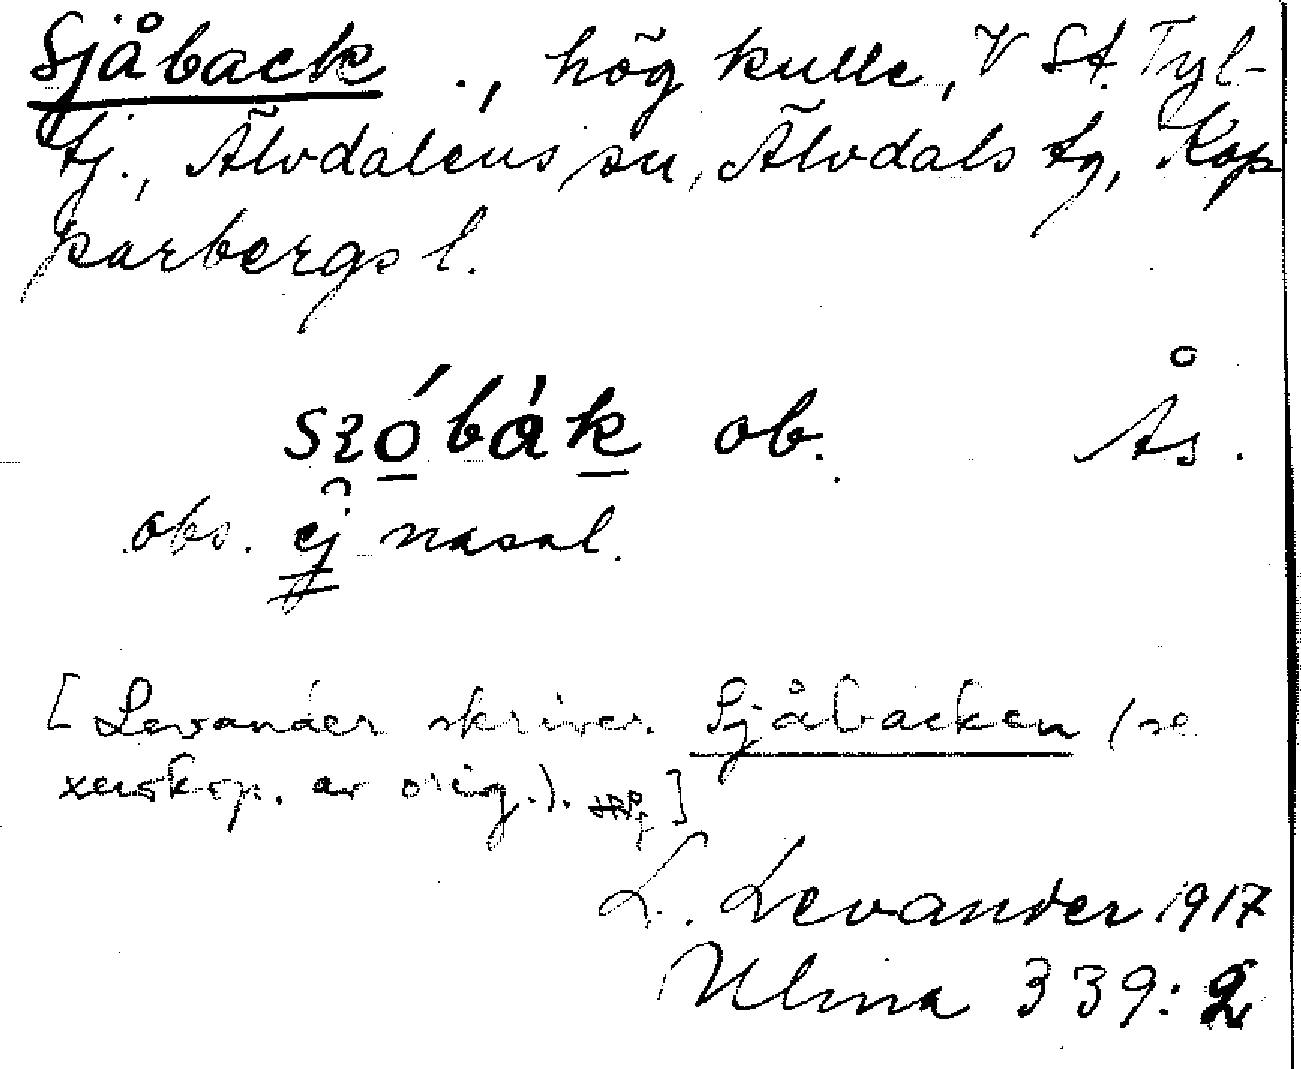 Sjåback ., hög kulle, V St. Tyl-
tj., Älvdalens sn, Älvdals tg, Kop
parbergs l.
szóbàk ob. Ås.
obs. ej nasal.
[Levander skriver Sjåbacken (se
xeroxkop. av orig.). ]
L. Levander 1917
Ulma 339:2